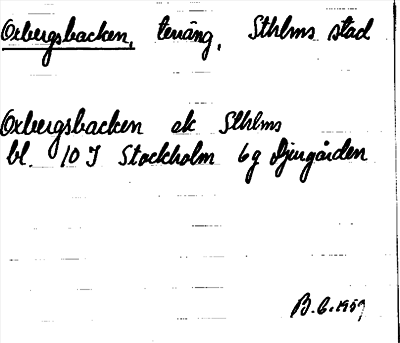 Oxbergsbacken, terräng, Sthlms stad
Oxbergsbacken ek Sthlms
bl. 10 I Stockholm 6g Djurgården
B.C. 1959